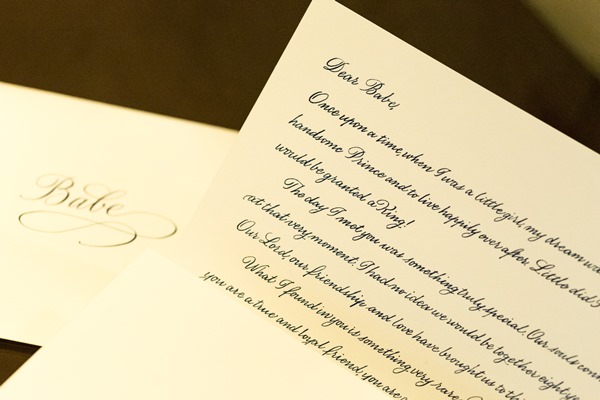 Babe
Dear Babe,
Once upon a time, when I was a little girl, my dream wa
handsome Prince and to live happily ever after. Little did I
would be granted a King!
The day I met you was something truly special. Our souls conn
at that very moment. I had no idea we would be together eight ye
Our Lord, our friendship and love have brought us to thi
What I found in you is something very rare.
you are a true and loyal friend, you are a